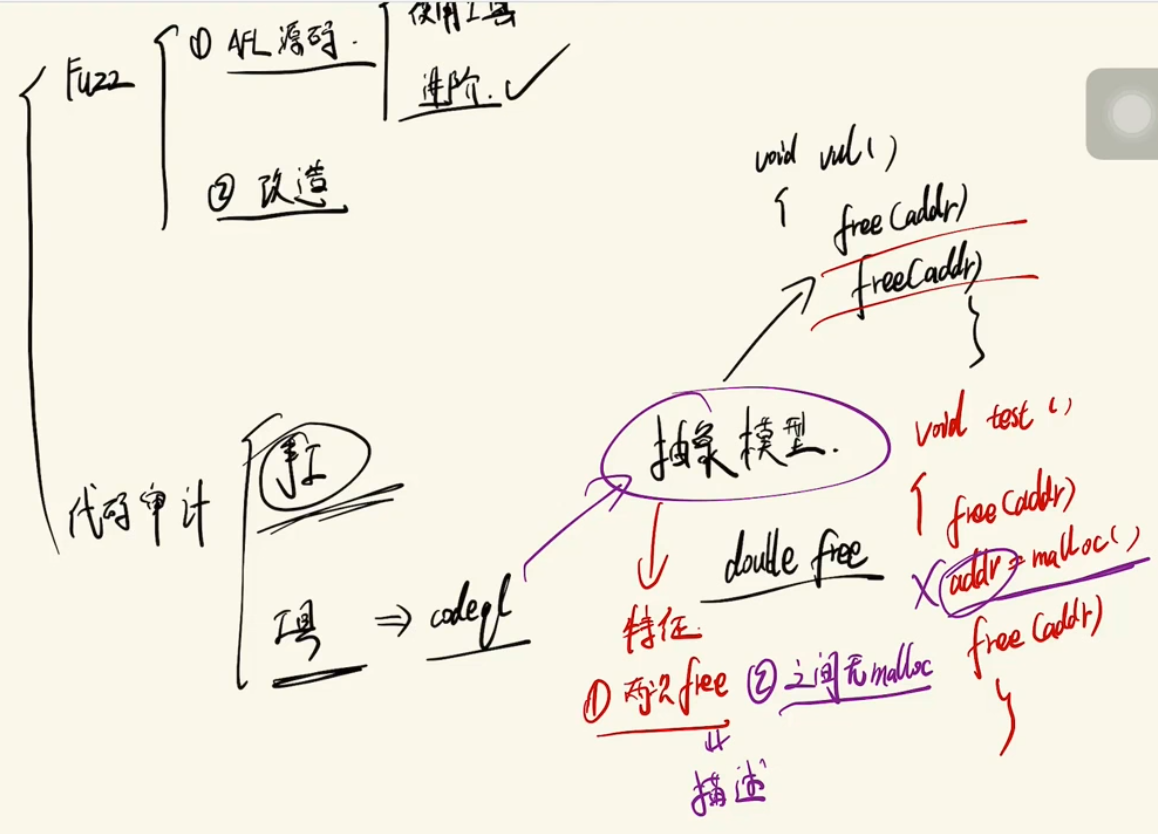 Fuzz
① AFL源码.
使用工具
进阶.
② 改造
代码审计
手工
工具 ⇒ codeql
抽象模型.
void vul()
{
free(addr)
free(addr)
}
double free
特征.
① 两次free
② 之间无malloc
描述
void test()
{
free(addr)
addr = malloc()
free(addr)
}